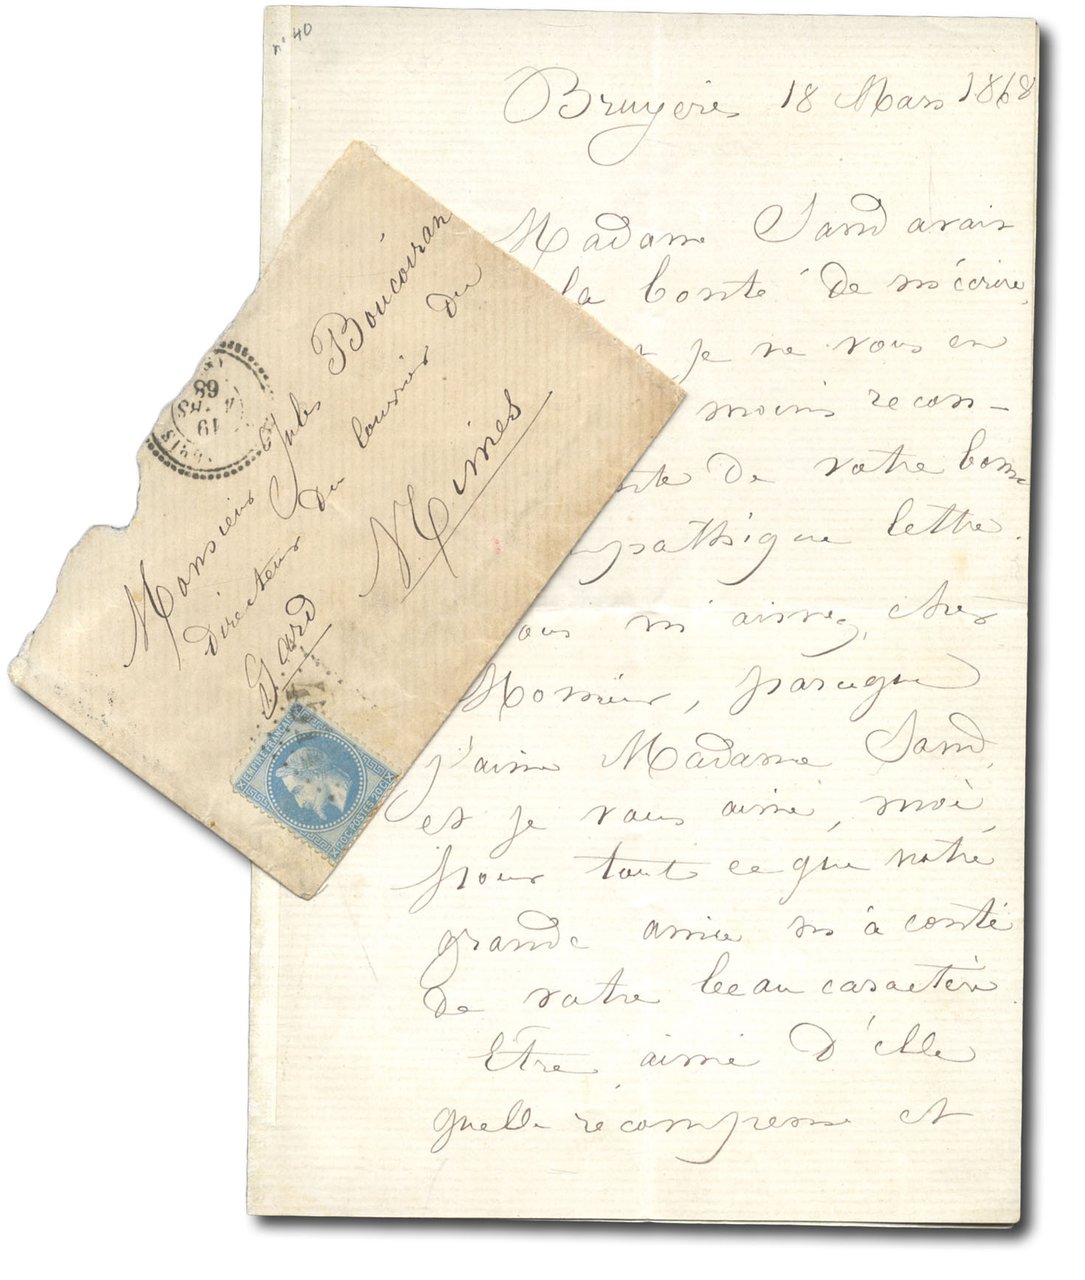 n° 40
Bruyères 18 Mars 1868
Madame Sand avait
la bonté de m'écrire,
je ne vous en
moins recon-
de votre bonne
mpathique lettre.
ous m'aimez, cher
Monsieur, parceque
j'aime Madame Sand,
et je vous aime, moi
pour tout ce que notre
grande amie m'a conté
de votre beau caractère.
Etre aimé d'elle
quelle récompense et
Monsieur Jules Boucoiran
Directeur du Courrier du
Gard
Nimes
19
68
EMPIRE FRANÇAIS
20C POSTES 20C